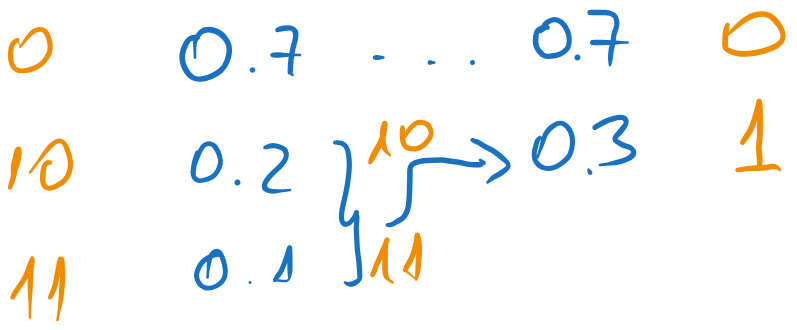 0 0.7 ... 0.7 0
10 0.2 10 0.3 1
11 0.1 11